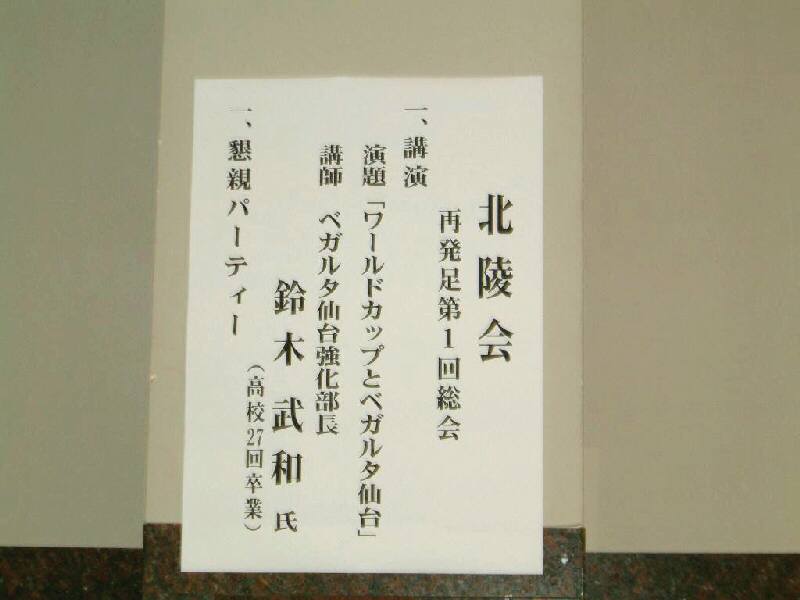 北陵会
再発足第1回総会
一、講演
演題「ワールドカップとベガルタ仙台」
講師 ベガルタ仙台強化部長
鈴木武和氏
(高校27回卒業)
一、懇親パーティー